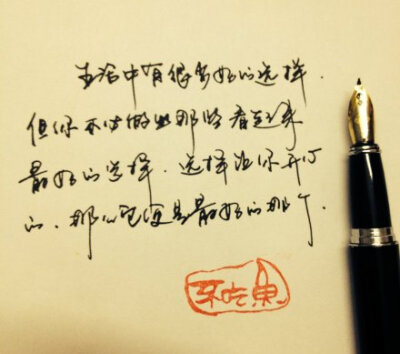 生活中有很多好的选择.
但你不必做出那些看起来
最好的选择.选择让你开心
的.那么它便是最好的那个.
不吃鱼